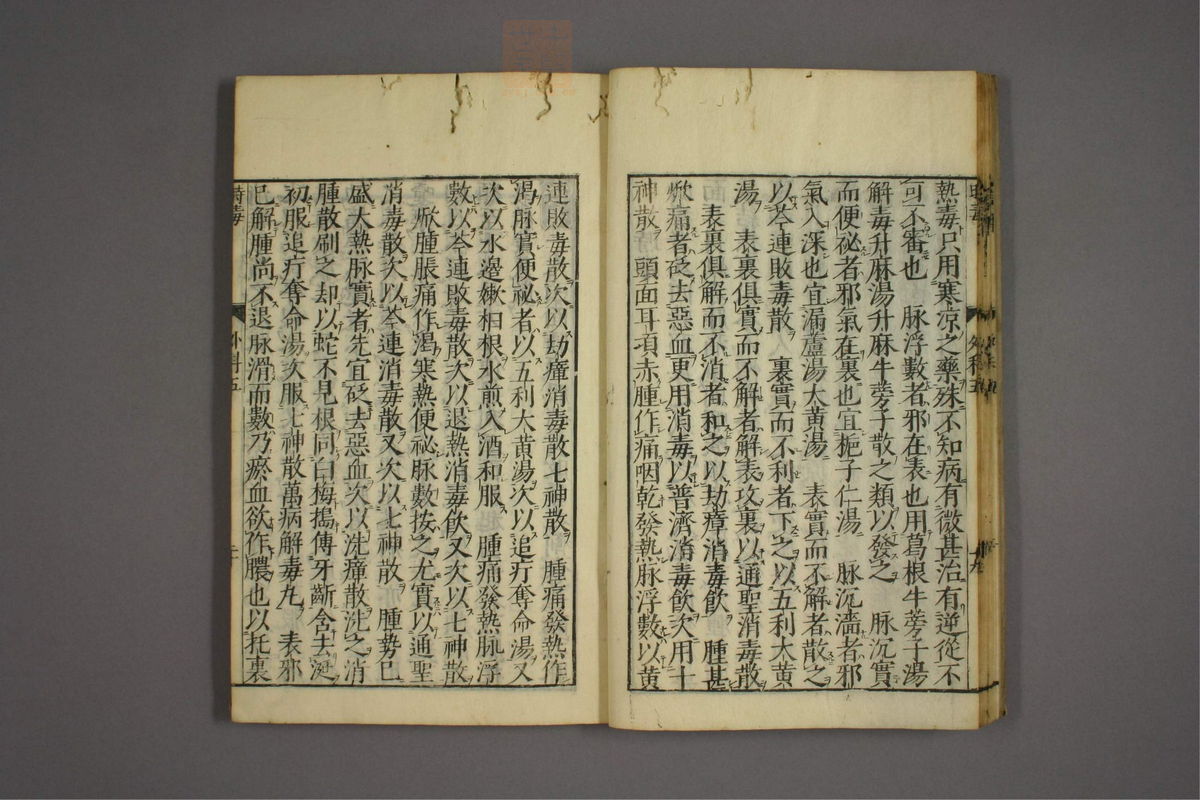 熱毒只用寒凉之藥殊不知病有微甚治有逆從不
可不審也　脉浮數者邪在表也用葛根牛蒡子湯
解毒升麻湯升麻牛蒡子散之類以發之　脉沉實
而便祕者邪氣在裏也宜梔子仁湯　脉沉濇者邪
氣入深也宜漏蘆湯大黄湯　表實而不解者散之
以芩連敗毒散　裏實而不利者下之以五利大黄
湯　表裏俱實而不解者解表攻裏以通聖消毒散
表裏俱解而不消者和之以劫瘴消毒飲　腫甚
焮痛者砭去惡血更用消毒以普濟消毒飲次用十
神散　頭面耳項赤腫作痛咽乾發熱脉浮數以黄
連敗毒散次以劫瘴消毒散七神散　腫痛發熱作
渴脉實便祕者以五利大黄湯次以追疔奪命湯又
次以水邊嫩柏根水煎入酒和服　腫痛發熱脉浮
數以芩連敗毒散次以退熱消毒飲又次以七神散
焮腫脹痛作渴寒熱便祕脉數按之尤實以通聖
消毒散次以芩連消毒散又次以七神散　腫勢已
盛大熱脉實者先宜砭去惡血次以洗瘴散洗之消
腫散刷之却以蛇不見根同白梅搗傅牙齗含去涎
初服追疔奪命湯次服七神散萬病解毒丸　表邪
已解腫尚不退脉滑而數乃瘀血欲作膿也以托裏
時毒
外科五